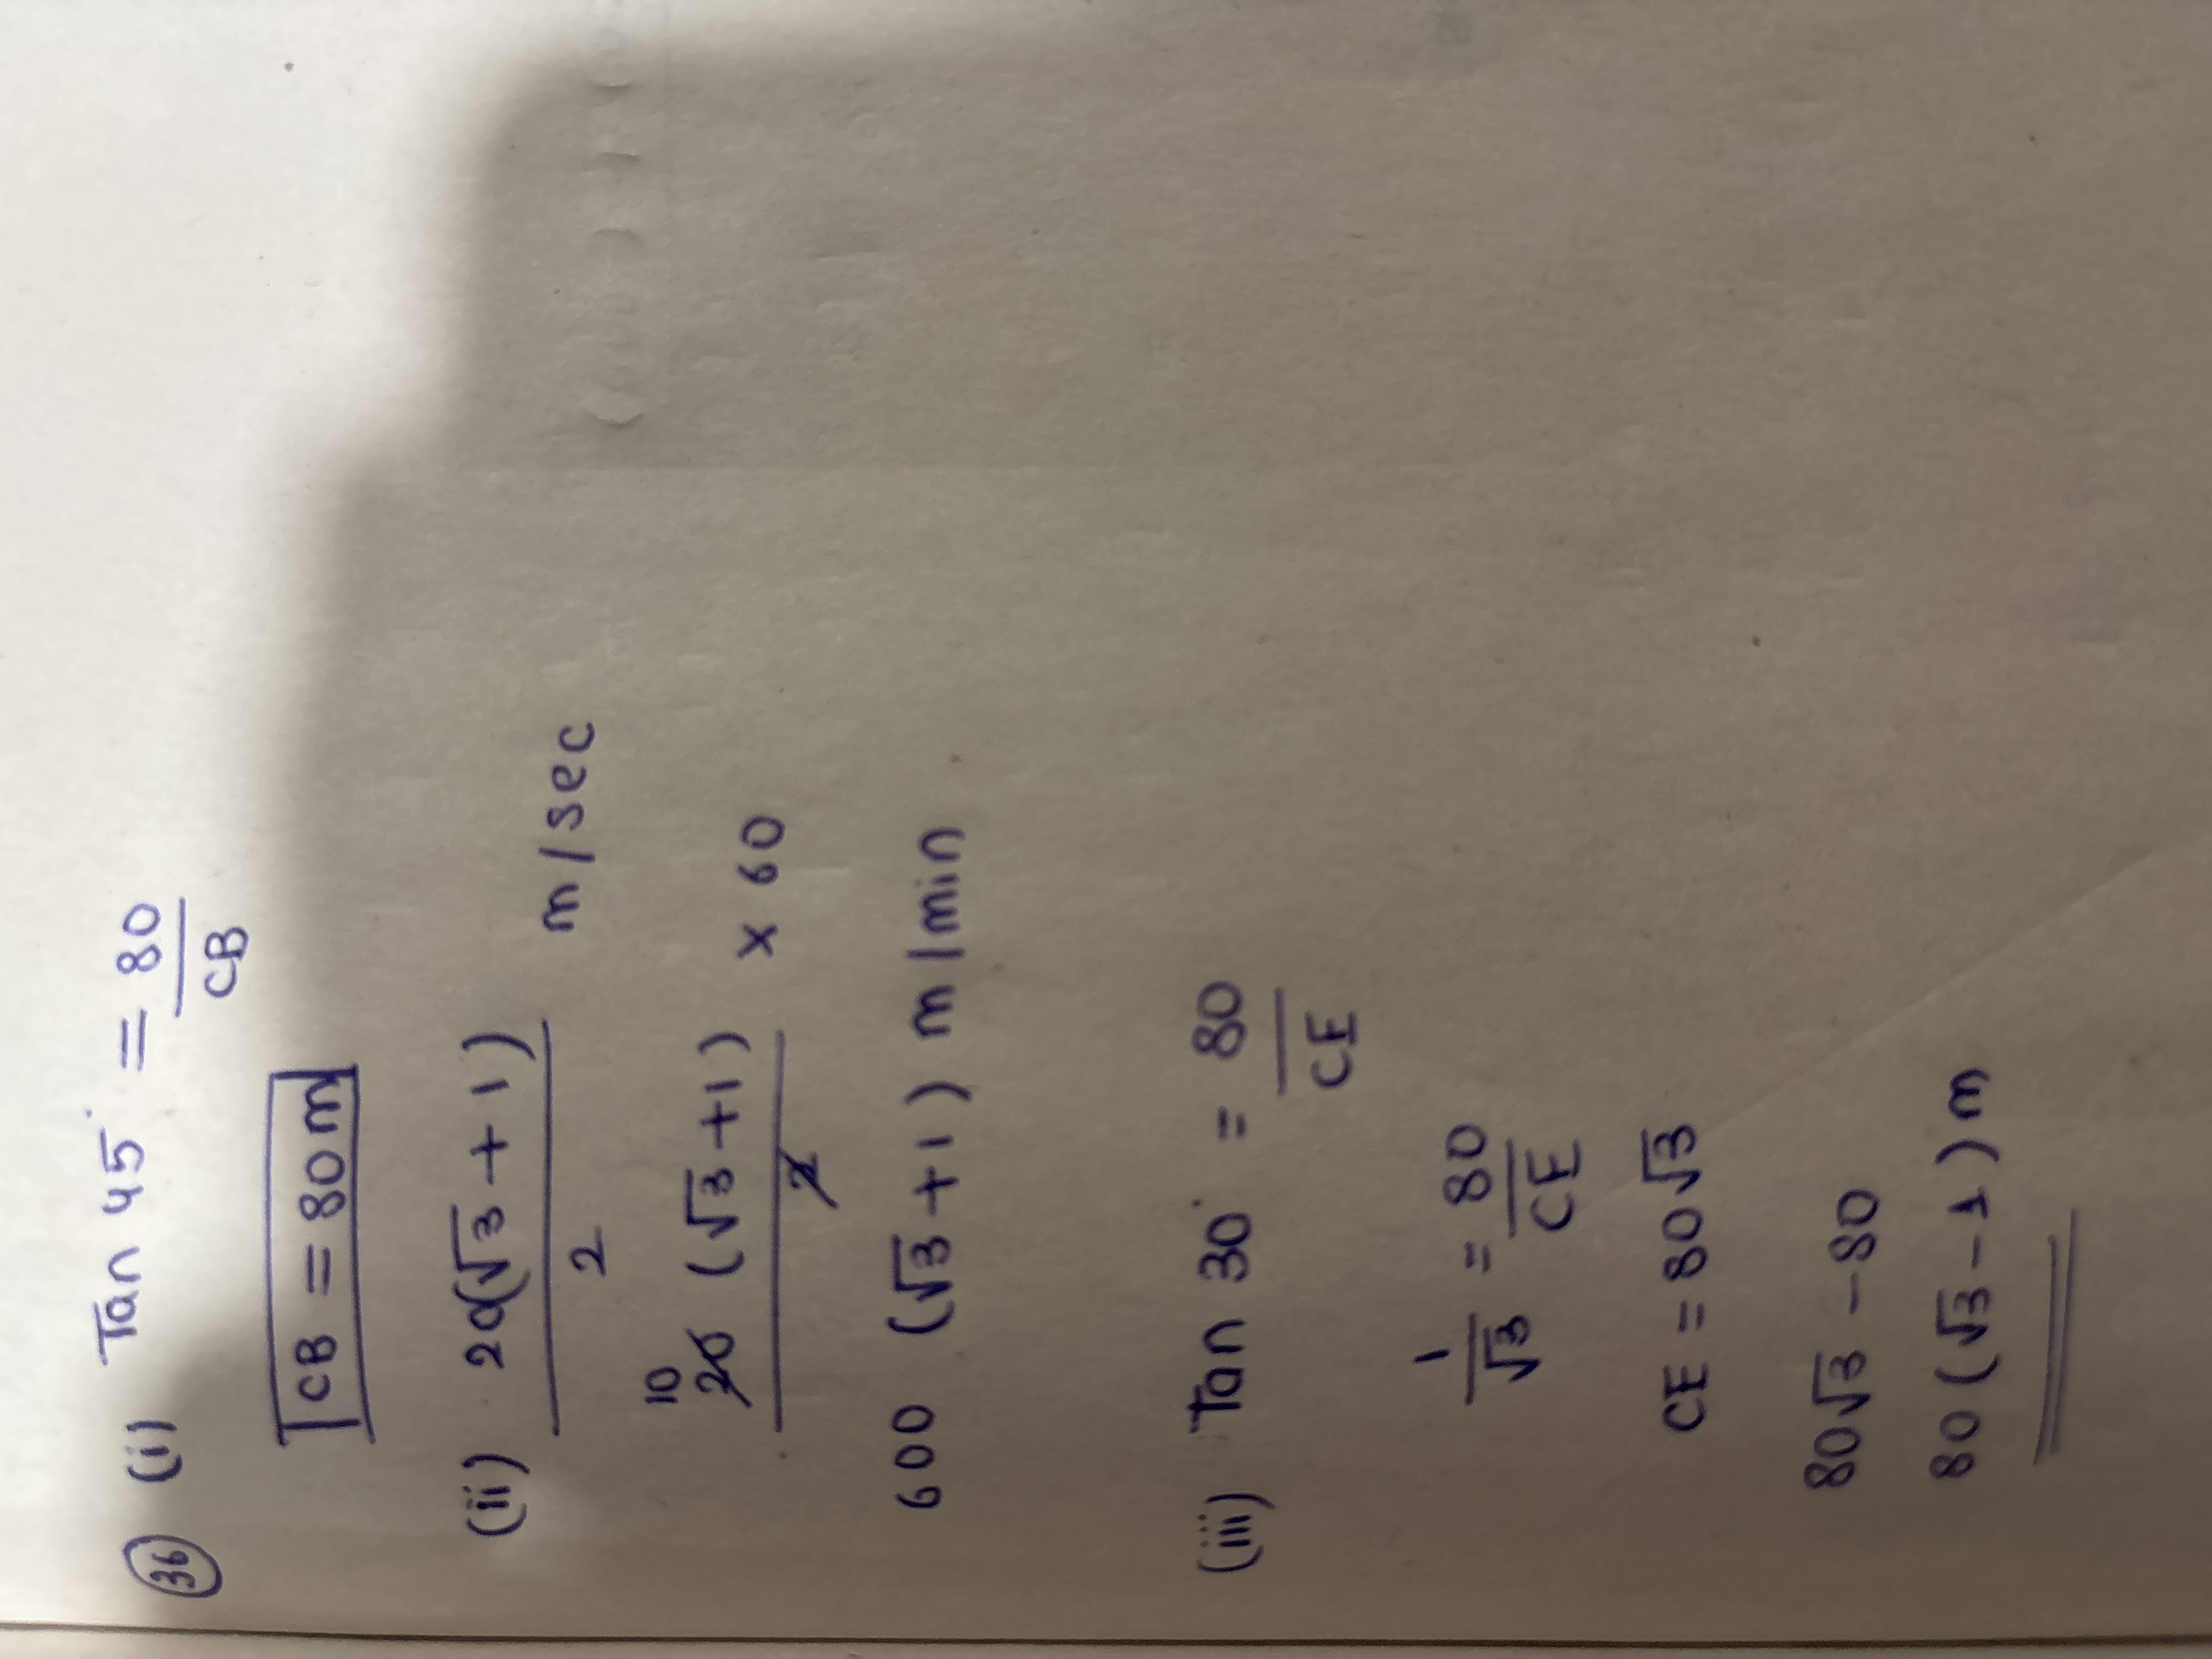 36 (i) Tan 45° = 80/CB
CB = 80 m
(ii) 20(√3 + 1)/2 m/sec
10
20 (√3 + 1)/2 × 60
600 (√3 + 1) m/min
(iii) Tan 30° = 80/CE
1/√3 = 80/CE
CE = 80√3
80√3 - 80
80 (√3 - 1) m